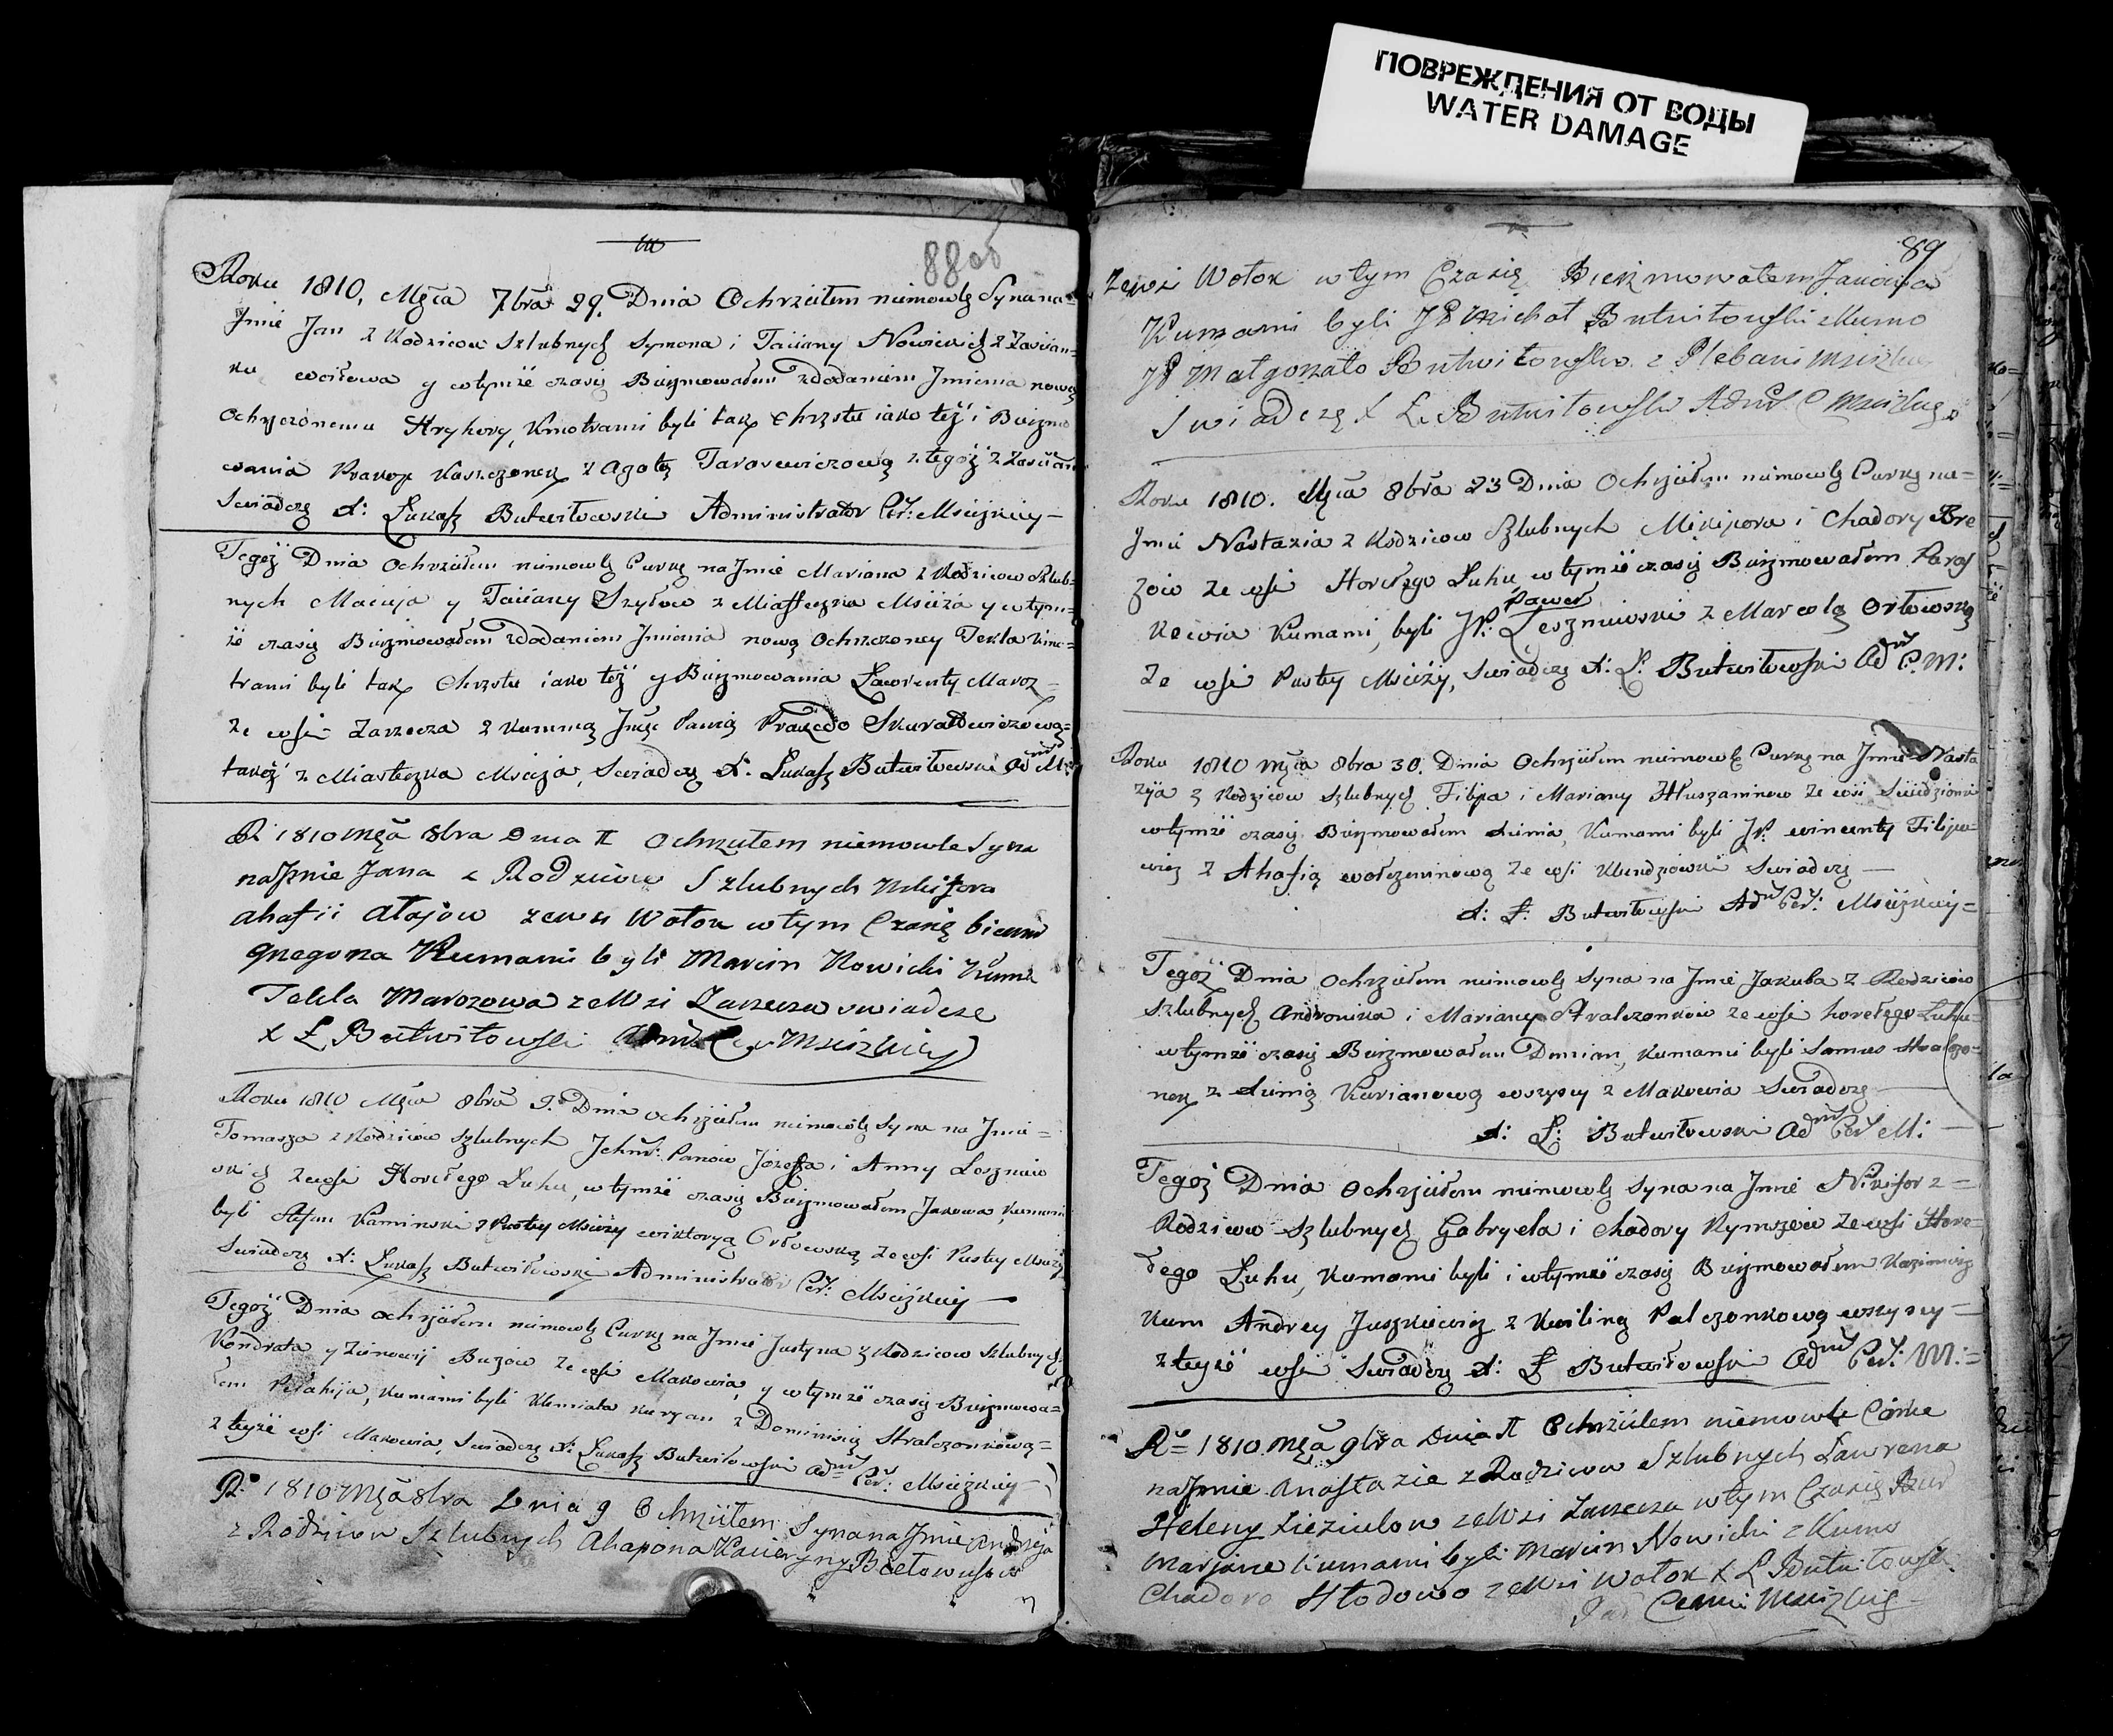 ПОВРЕЖДЕНИЯ ОТ ВОДЫ
WATER DAMAGE
88об
Roku 1810, Mca 7bra 29. Dnia Ochrzciłem niemowlę Syna na=
Jmie Jan z Rodzicow Szlubnych Symona i Taciany Nowickich z Zascian=
ku y wtymże czasie Bierzmowałem zdodaniem Jmienia nowo
Ochrzczonemu Hryhory, Kmotrami byli tak Chrzstu iako też i Bierzmo
wania Prakop Kaszczonek z Agatą Tarasewiczową z tegoż Zascian
Swiadczę X: Łukasz Butwiłowski Administrator Cer: Mscizkiey
Tegoż Dnia Ochrzciłem niemowlę Curkę na Jmie Mariana z Rodzicow Szlub=
nych Macieja y Taciany Szyłow z Miasteczka Msciża y wtym=
że czasie Bierzmowałem zdodaniem Jmienia nowo Ochrzczoney Tekla Kmo=
trami byli tak Chrzstu iako też y Bierzmowania Ławrenty Maroz
ze wsi Zarzecza z Kummą Praxedo Skuratowiczową=
takoż z Miasteczka Msciża, Swiadczę X. Łukasz Butwiłowski Adm M:
R 1810 Mca 8bra Dnia Π Ochrzciłem niemowle Syna
na Jmie Jana z Rodzicow Szlubnych Nikifora
Ahafii Ałajow zewsi Wołok wtym Czasie
Kumami byli Marcin Nowicki Kuma
Tekla Marozowa zeWsi Zarzecza swiadcze
X Ł Butwiłowski Adm Cer Mscizkiey
Roku 1810 Mca 8bra 9. Dnia ochrzciłem niemowlę Syna na Jmie=
Tomasza z Rodzicow Szlubnych Jchm: Panow Jozefa i Anny Leszniew
skich zewsi Horełego Łuhu, wtymże czasie Bierzmowałem Jakowa, Kumami
byli Stefan Kaminski z Pustey Msciży z Wiktoryą Orłowską ze wsi Pustey Msciży
Swiadczę X: Łukasz Butwiłowski Administrator Cer: Mscizkiey
Tegoż Dnia ochrzciłem niemowlę Curkę na Jmie Justyna z Rodzicow Szlubnych
Kondrata y Zienowij Buzow ze wsi Makowia, y wtymże czasie Bierzmowa=
łem Pełahija, Kumami byli Klemiata Kuryan z Dominisią Stralczonkową=
z teyże wsi Makowia, Swiadczę X: Łukasz Butwiłowski Adm Cer: Mscizkiey
R: 1810 Mca 8bra Dnia 9 Ochrzciłem Syna na Jmie Andreja
z Rodzicow Szlubnych Ahapona Kacieryny
89
zewsi Wołok wtym Czasie Bierzmowałem
Kumami byli JP Michał Butwiłowski z Kumo
JP Małgorzato Butwiłowsko z Plebani Msci
Swiadczę X Ł Butwiłowski Adm C Mscizkiego
Roku 1810. Mca 8bra 23 Dnia Ochrzciłem niemowlę Curkę na=
Jmie Nastazia z Rodzicow Szlubnych Mikipora i Chadory Bre
zow ze wsi Horełego Łuhu wtymże czasie Bierzmowałem Paras
kewia Kumami, byli JP: Paweł Leszniewski z Marcelą Orłowską
ze wsi Pustey Msciży, Swiadczę X: Ł: Butwiłowski Adm C. M:
Roku 1810 Mca 8bra 30. Dnia Ochrzciłem niemowlę Curkę na Jmie Nasta
zya z Rodzicow Szlubnych Filipa i Mariany Hłuszaninow ze wsi
wtymże czasie Bierzmowałem Xienia, Kumami byli JP. Wincenty Filipo=
wicz z Ahafią Wołczeninową ze wsi Kundziowki Swiadczę
X: Ł: Butwiłowski Adm Cer: Mscizkiey=
Tegoż Dnia Ochrzciłem niemowlę Syna na Jmie Jakuba z Rodzicow
Szlubnych Andronika i Mariany Stralczonkow ze wsi horełego Łuhu=
wtymże czasie Bierzmowałem Demian, Kumami byli Samuś Stralczo=
nek z Xienią Kurianową wszyscy z Makowia Swiadczę
X: Ł: Butwiłowski Adm Cer M:
Tegoż Dnia Ochrzciłem niemowlę Syna na Jmie Nikifor z=
Rodzicow Szlubnych Gabryela i Chadory Rymszow ze wsi Hore=
łego Łuhu, Kumami byli i wtymże czasie Bierzmowałem Kazimierz
Kum Andrey Juszkiewicz z Kwiliną Palczonkową wszyscy=
z teyże wsi Swiadczę X: Ł Butwiłowski Adm Cer: M:=
R= 1810 Mca 9bra Dnia Π Ochrzciłem niemowle Corke
na Jmie Anastazie z Rodzicow Szlubnych Ławrena
Heleny zeWsi Zarzecza wtym Czasie Bier
Marjane Kumami byli Marcin Nowicki z Kumo
Chadoro Hłodowo zeWsi Wołok X Ł Butwiłowski